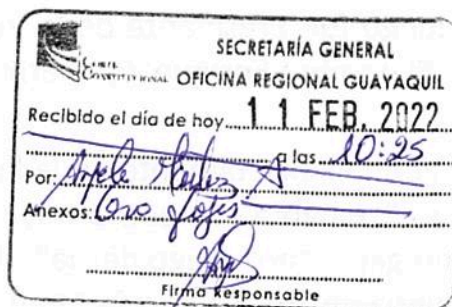 CORTE
CONSTITUCIONAL
SECRETARÍA GENERAL
OFICINA REGIONAL GUAYAQUIL
Recibido el día de hoy 11 FEB. 2022
a las 10:25
Por:
Anexos:
Firma Responsable